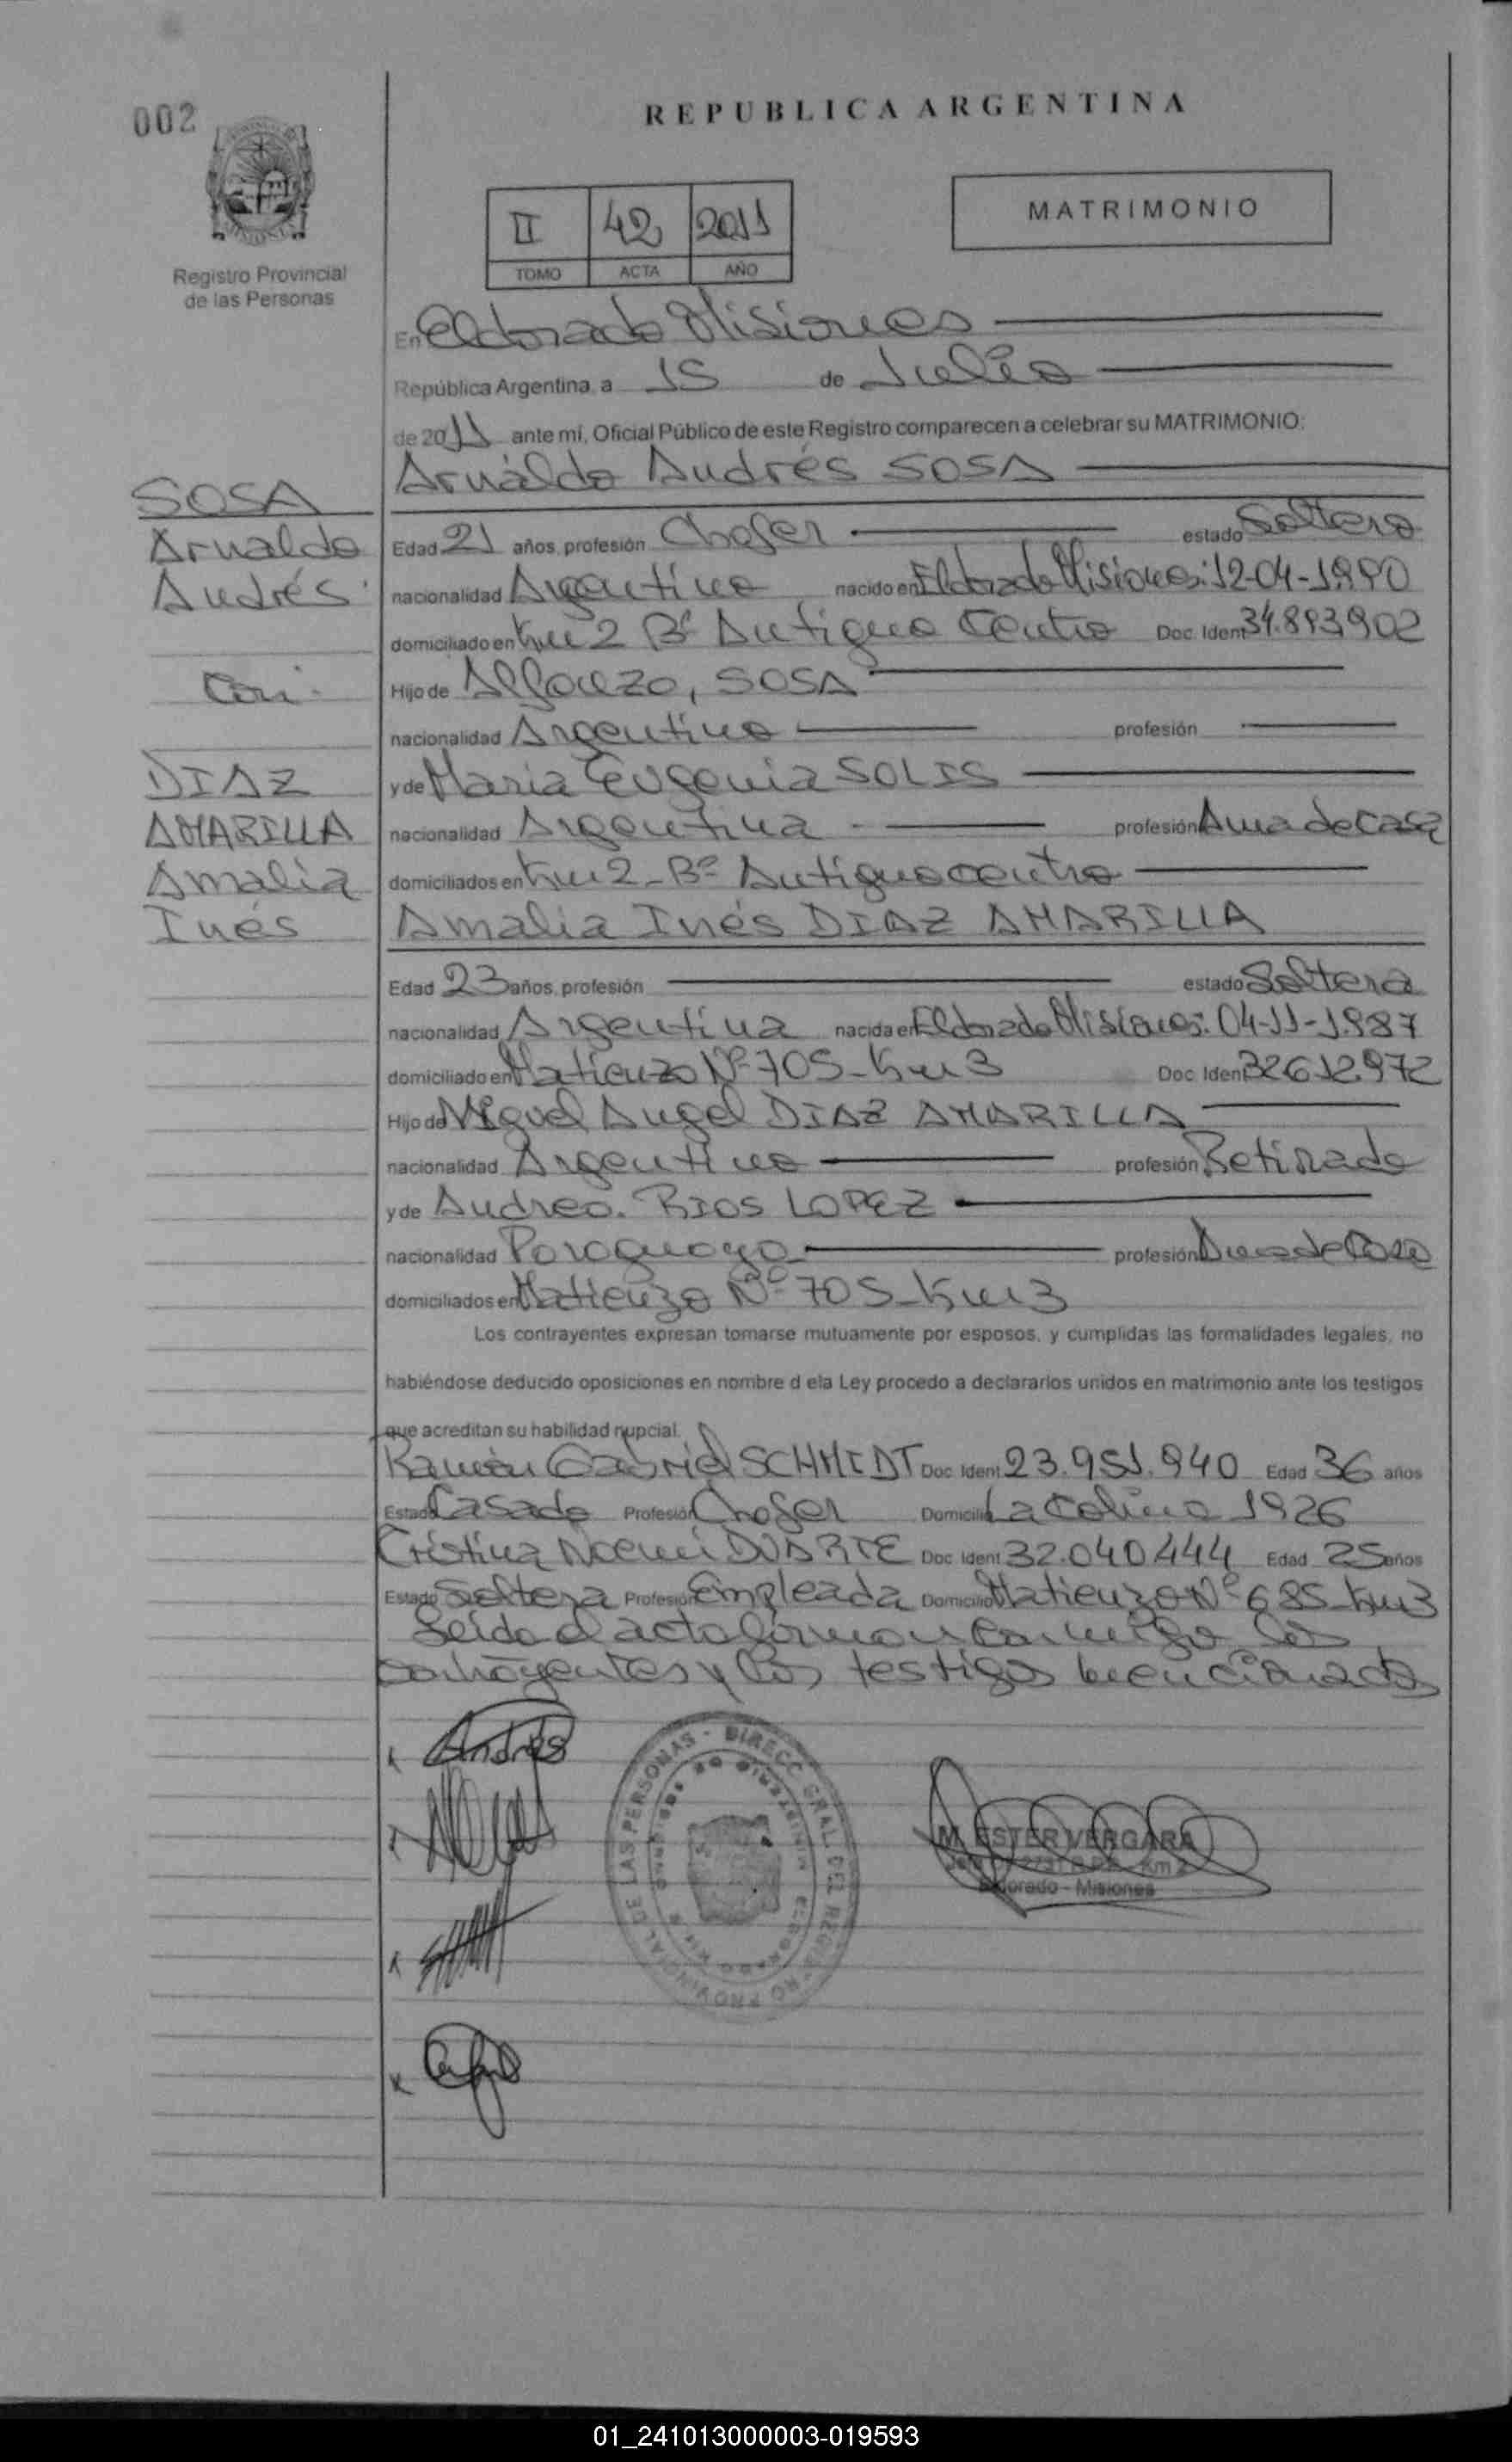 002
REPUBLICA ARGENTINA
II 42 2011
TOMO ACTA AÑO
MATRIMONIO
Registro Provincial
de las Personas
En Eldorado Misiones
República Argentina, a 15 de Julio
de 2011 ante mí, Oficial Público de este Registro comparecen a celebrar su MATRIMONIO:
Arnaldo Andrés SOSA
SOSA
Arnaldo
Andrés
Con
DIAZ
AMARILLA
Amalia
Inés
Edad 21 años, profesión Chofer estado Soltero
nacionalidad Argentino nacido en Eldorado Misiones: 12-04-1990
domiciliado en Km 2 Bº Antiguo Centro Doc. Ident 34.893902
Hijo de SOSA
nacionalidad Argentino profesión
y de Maria Eugenia SOLIS
nacionalidad Argentina profesión Ama de Casa
domiciliados en Km 2 - Bº Antiguo centro
Amalia Inés DIAZ AMARILLA
Edad 23 años, profesión estado Soltera
nacionalidad Argentina nacida en Eldorado Misiones: 04-11-1.987
domiciliado en Matienzo Nº 705 - Km 3 Doc. Ident 32612.972
Hijo de Miguel Angel DIAZ AMARILLA
nacionalidad Argentino profesión Retirado
y de Andrea RIOS LOPEZ
nacionalidad Paraguaya profesión Ama de Casa
domiciliados en Matienzo Nº 705 - Km 3
Los contrayentes expresan tomarse mutuamente por esposos, y cumplidas las formalidades legales, no
habiéndose deducido oposiciones en nombre d ela Ley procedo a declararlos unidos en matrimonio ante los testigos
que acreditan su habilidad nupcial.
Ramón Gabriel SCHMIDT Doc. Ident 23.951.940 Edad 36 años
Estado Casado Profesión Chofer Domicilio La Colina 1926
Cristina Noemi DUARTE Doc. Ident 32.040.444 Edad 25 años
Estado Soltera Profesión Empleada Domicilio Matienzo Nº 685 - Km 3
Leido el acta firman conmigo los
contrayentes y los testigos mencionados
Andrés
M. ESTER VERGARA
Eldorado - Misiones
01_241013000003-019593